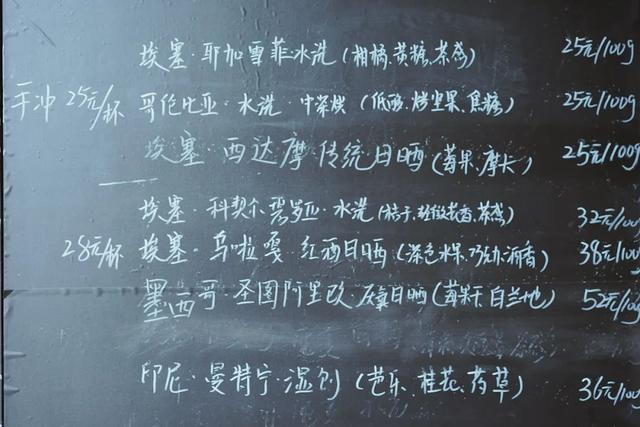 埃塞·耶加雪菲·水洗(柑橘、黄糖、茶感) 25元/100g
手冲 25元/杯 哥伦比亚·水洗·中深烘(低酸、烤坚果、焦糖) 25元/100g
埃塞·西达摩 传统日晒(莓果、摩卡) 25元/100g
埃塞·科契尔 水洗(桔子、轻微花香、茶感) 32元/100
28元/杯 埃塞·乌啦嘎·红酒日晒(深色水果、巧克力、酒香) 38元/100
墨西哥·圣图阿里欧 厌氧日晒(莓果干、白兰地) 52元/100
印尼·曼特宁·湿刨(芭乐、桂花、药草) 36元/100